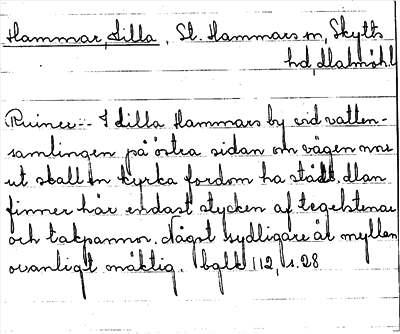 Hammar, Lilla, St. Hammars sn, Skytts
hd, Malmöhl
Ruiner:- I Lilla Hammars by vid vatten-
samlingen på östra sidan om vägen norr
ut skall en kyrka fordom ha stått. Man
finner här endast stycken af tegelstenar
och takpannor. Något sydligare är myllan
ovanligt mäktig. bglk 112, s. 28